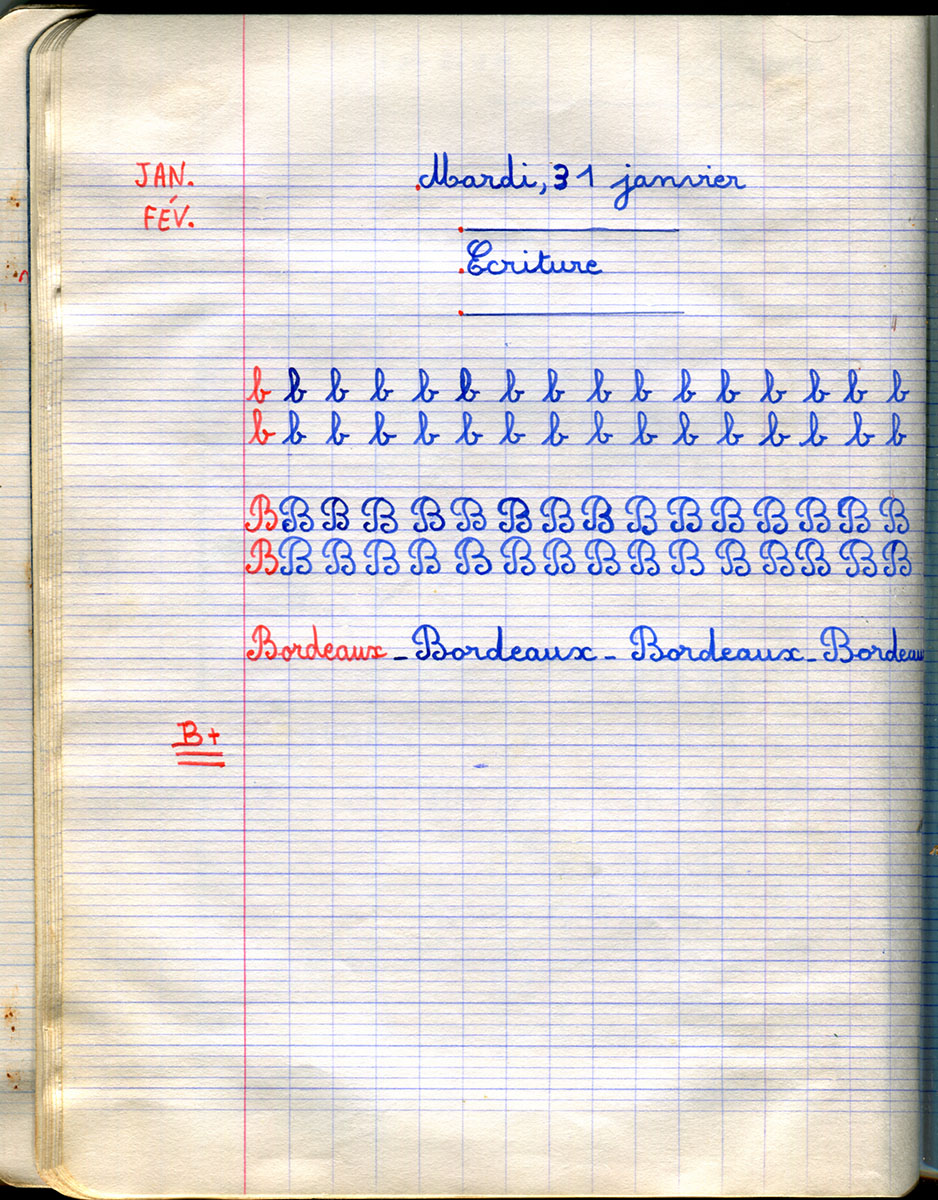 JAN.
Mardi, 31 janvier
FÉV.
Ecriture
b b b b b b b b b b b b b b b b
b b b b b b b b b b b b b b b b
B B B B B B B B B B B B B B B B
B B B B B B B B B B B B B B B B
Bordeaux - Bordeaux - Bordeaux - Bordeau
B+